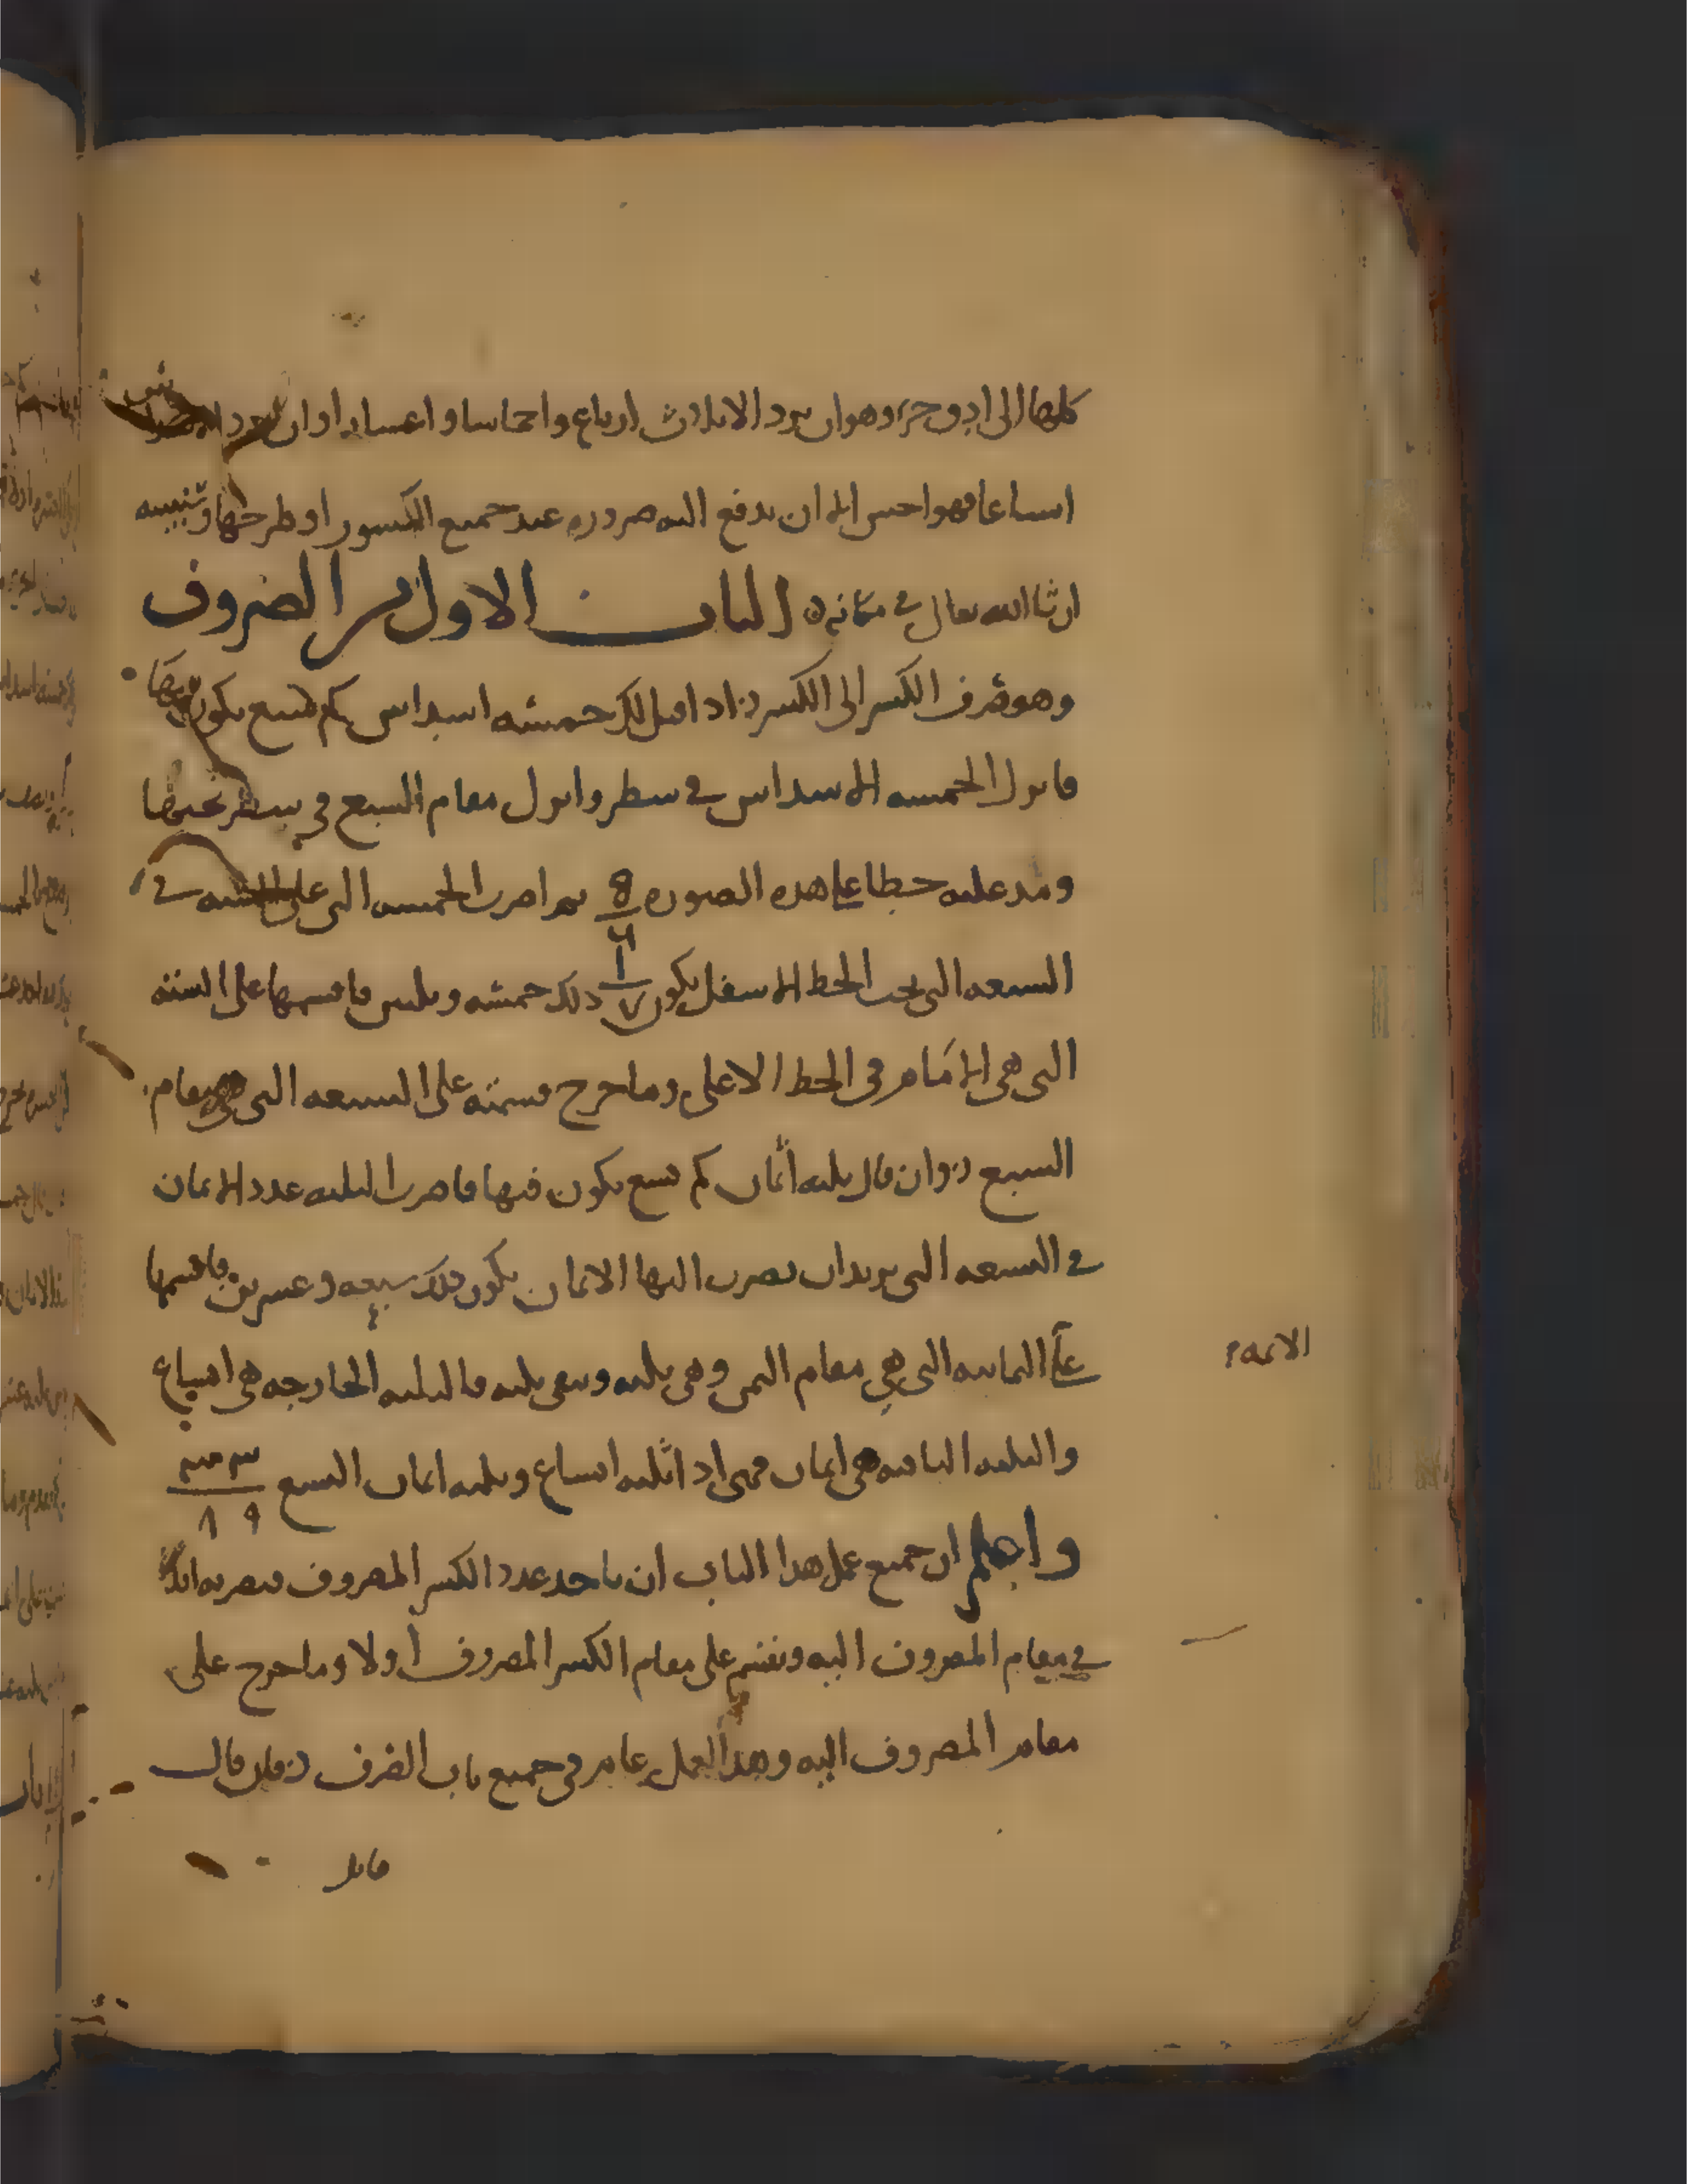 كلها الى ادون جزء وهو ان يرد الاثلاث ارباع واخماسا واعشارا وان يرد
اسباعا فهو احسن الا ان يدفع اليه ضروره عند جميع الكسور او طرحها وتنبيسه
ان شا الله تعالى في مكانه ٥ الباب الاول من الصروف
وهو صرف الكسر الى الكسر ٠: اذا قيل لك خمسه اسداس كم سبع يكون فيها
فانزل الخمسه الاسداس في سطر وانزل مقام السبع في سطر تحتها
ومد عليه خطا على هذه الصوره ٥/٦ ثم اضرب الخمسه التي على السته في
السبعه التي تحت الخط الاسفل يكون ١/٧ ذلك خمسه وثلثين فاقسمها على السته
التي هي الامام في الخط الاعلى وما خرج قسمته على السبعه التي هي مقام
السبع ٠: وان قال ثلثه اثمان كم تسع يكون فيها فاضرب الثلثه عدد الاثمان
في التسعه التي يريد ان تصرف اليها الاثمان يكون ذلك سبعه وعشرين فاقسمها
على الثمانيه التي هي مقام الثمن وهي ثلثه وتبقى ثلثه فالثلثه الخارجه هي اتساع
والثلثه الباقيه هي اثمان فهي اذا ثلثه اتساع وثلثه اثمان التسع ٣ ٣ / ٩ ٨
واعلم ان جميع عمل هذا الباب ان ياخذ عدد الكسر المصروف فتضربه ابدا
في مقام المصروف اليه وتقسم على مقام الكسر المصروف اولا وما خرج على
مقام المصروف اليه وهذا العمل عام في جميع باب الصرف ٠: فان قال
قايل